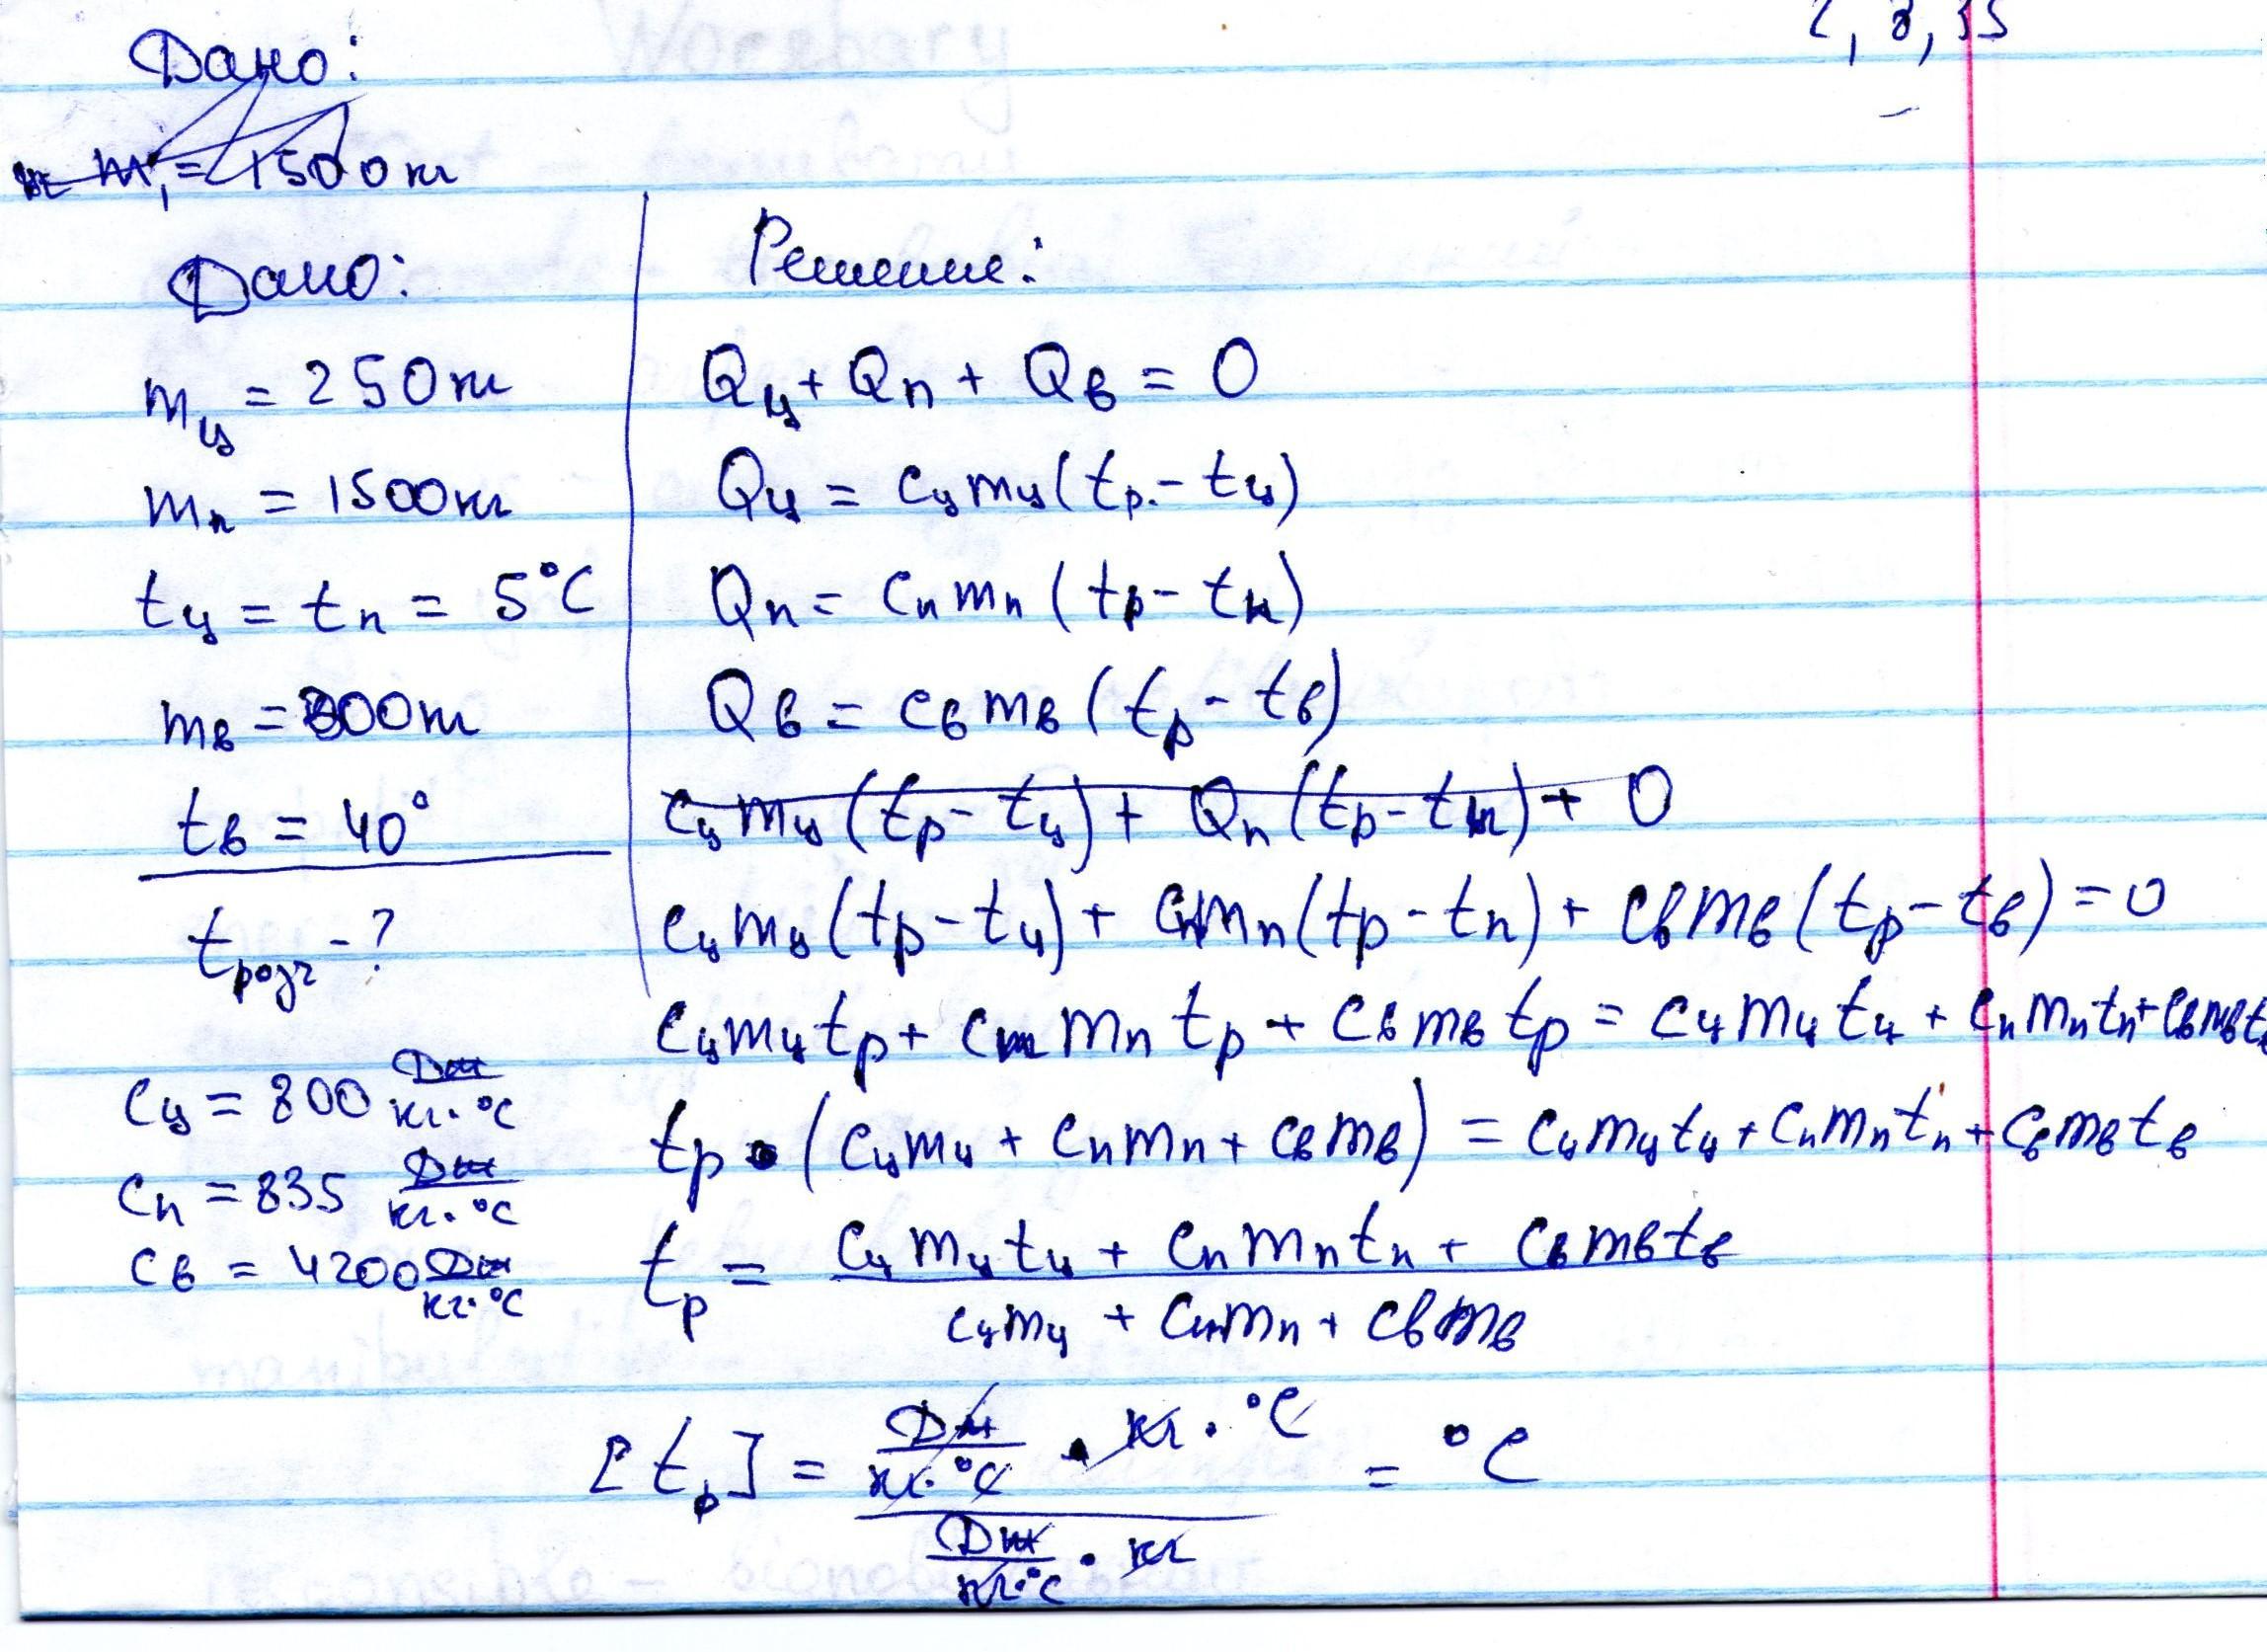 2, 8, 35
Дано:
m₁ = 1500 кг
Дано:
m_ц = 250 кг
m_п = 1500 кг
t_ц = t_п = 5°C
m_в = 300 кг
t_в = 40°
t_розч - ?
c_ц = 800 Дж/кг·°C
c_п = 835 Дж/кг·°C
c_в = 4200 Дж/кг·°C
Решение:
Q_ц + Q_п + Q_в = 0
Q_ц = c_ц m_ц (t_р. - t_ц)
Q_п = c_п m_п (t_р - t_п)
Q_в = c_в m_в (t_р - t_в)
c_ц m_ц (t_р - t_ц) + Q_п (t_р - t_п) + 0
c_ц m_ц (t_р - t_ц) + c_п m_п (t_р - t_п) + c_в m_в (t_р - t_в) = 0
c_ц m_ц t_р + c_п m_п t_р + c_в m_в t_р = c_ц m_ц t_ц + c_п m_п t_п + c_в m_в t_в
t_р · (c_ц m_ц + c_п m_п + c_в m_в) = c_ц m_ц t_ц + c_п m_п t_п + c_в m_в t_в
t_р = (c_ц m_ц t_ц + c_п m_п t_п + c_в m_в t_в) / (c_ц m_ц + c_п m_п + c_в m_в)
[t_р] = (Дж/кг·°C · кг · °C) / (Дж/кг·°C · кг) = °C